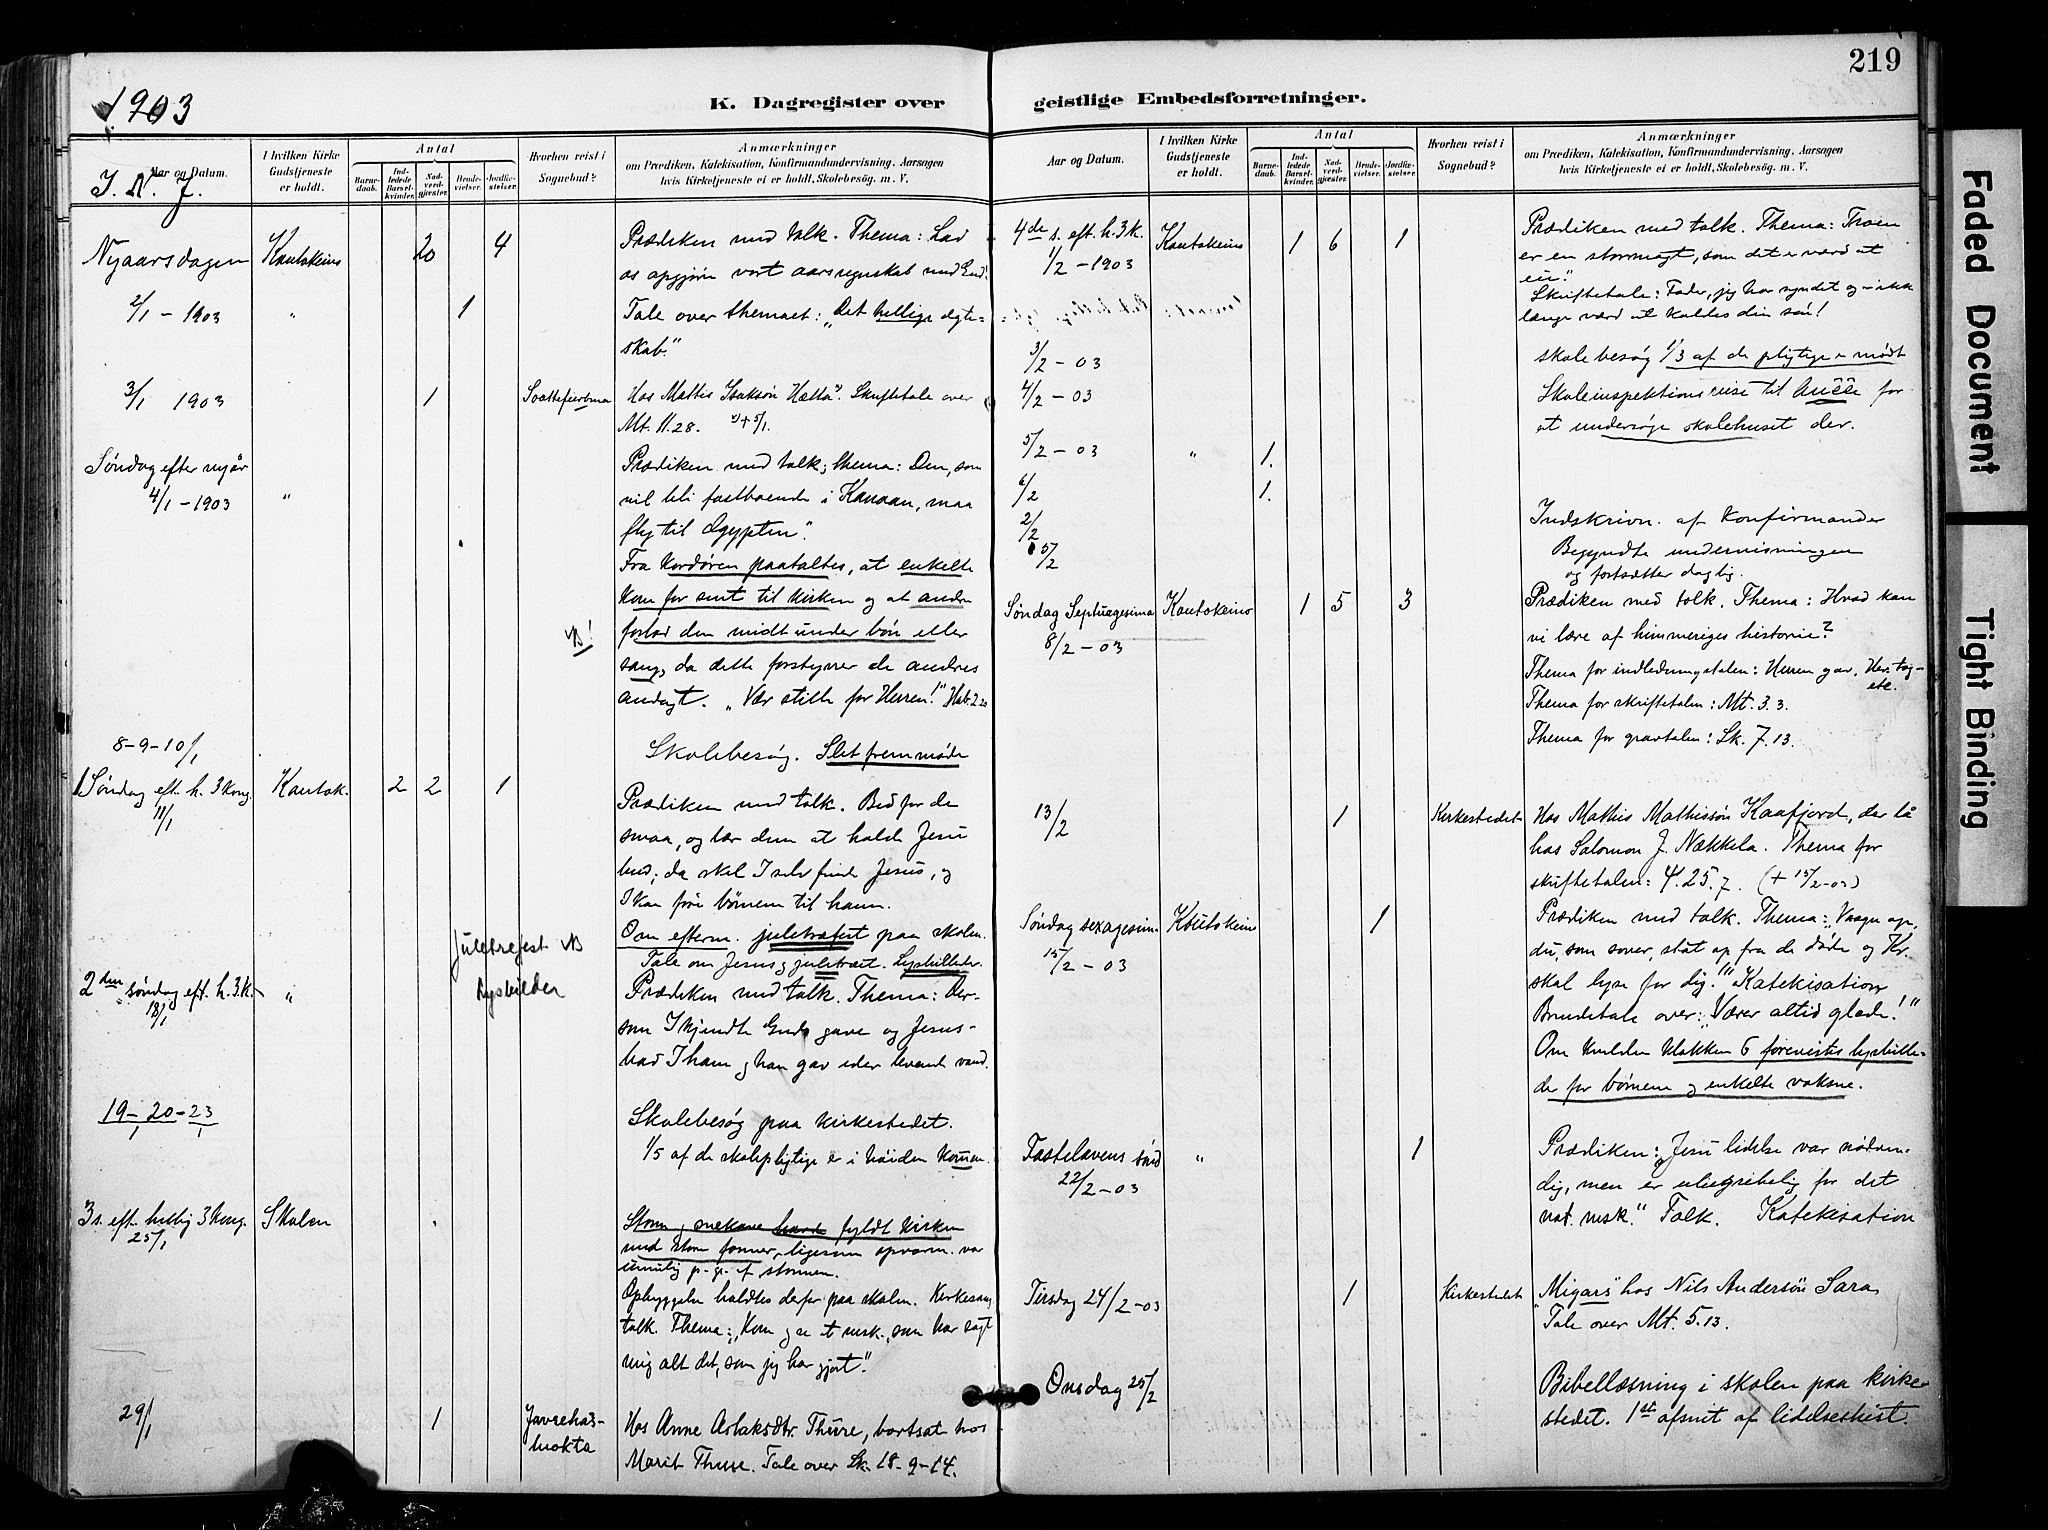 219
1903
K. Dagregister over geistlige Embedsforretninger.
Aar og Datum.
I hvilken Kirke Gudstjeneste er holdt.
Antal
Barnedaab.
Indledede Barselkvinder.
Nadverdgjæster.
Brudevielser.
Jordfæstelser.
Hvorhen reist i Sognebud?
Anmærkninger
om Prædiken, Katekisation, Konfirmandundervisning. Aarsagen
hvis Kirketjeneste ei er holdt, Skolebesøg. m. V.
I. N. J.
Nyaarsdagen Kautokeino 20 4 Prædiken med tolk. Thema: Lad
os opgjøre vort aarsregnskab med Gud.
2/1 – 1903 " 1 Tale over themaet: „Det hellige ægte-
skab."
3/1 1903 1 Hos Mattis Isaksøn Hætta. Skriftetale over
Mt. 11.28. + 5/1.
Søndag efter nyår Prædiken med tolk; thema: Den, som
4/1 – 1903 " vil bli fastboende i Kanaan, maa
fly til Ægypten".
Fra kordøren paataltes, at enkelte
kom for sent til kirken og at andre
NB! forlod den midt under bøn eller
sang, da dette forstyrrer de andres
andagt. „Vær stille for Herren!" Hab. 2.20
8-9-10/1 Skolebesøg. Slet fremmøde
1 Søndag eft. h. 3 kong. Kautok. 2 2 1
11/1 Prædiken med tolk. Bed for de
smaa, og lær dem at holde Jesu
bud; da skal I selv finde Jesus, og
I kan føre børnene til ham.
Juletrefest NB Om efterm. juletræfest paa skolen.
Tale om Jesus og juletræet. Lysbilleder.
2den søndag eft. h. 3. k. " Lysbilder Prædiken med tolk. Thema: Der-
18/1 som I kjendte Guds gave og Jesus-
bad I ham, og han gav eder levende vand.
19-20-23/1 Skolebesøg paa kirkestedet.
1/5 af de skolepligtige er i
3 s. eft. hellig 3 kong. Skolen Storm og snekave havde fyldt kirken
25/1 med store fonner, ligesom opvarm. var
umulig p. gr. af stormen.
Opbyggelse holdtes derfor paa skolen. Kirkesang
tolk. Thema: „Kom og se et msk., som har sagt
mig alt det, som jeg har gjort."
29/1 1 Hos Anne Aslaksdtr. Thure, bortsat hos
Marit Thure. Tale over Lk. 18-9-14.
Aar og Datum.
I hvilken Kirke Gudstjeneste er holdt.
Antal
Barnedaab.
Indledede Barselkvinder.
Nadverdgjæster.
Brudevielser.
Jordfæstelser.
Hvorhen reist i Sognebud?
Anmærkninger
om Prædiken, Katekisation, Konfirmandundervisning. Aarsagen
hvis Kirketjeneste ei er holdt, Skolebesøg. m. V.
4de s. eft. h. 3 k. Kautokeino 1 6 1 Prædiken med tolk. Thema: Troen
1/2 – 1903 er en stormagt, som det er værd at
eie."
Skriftetale: Fader, jeg har syndet og er ikke
længe værd at kaldes din søn!
3/2 – 03 skolebesøg 1/3 af de pligtige er mødt
4/2 – 03 Skoleinspektionsreise til for
at undersøge skolehuset der.
5/2 – 03 " 1.
6/2 1.
2/2 Indskrivn. af konfirmander
5/2 Begyndte undervisningen
og fortsætter daglig.
Søndag Septuagesima Kautokeino 1 5 3 Prædiken med tolk. Thema: Hvad kan
8/2 – 03 vi lære af himmeriges historie?
Thema for indledningstalen: Herren gav, Her. tog-
etc.
Thema for skriftetalen: Mt. 3.3.
Thema for gravtalen: Lk. 7.13.
13/2 1 Kirkestedet Hos Mathis Mathissøn Kaafjord, der lå
hos Salomon J. Nækkela. Thema for
skriftetalen: 25.7. (+ 15/2-03)
Søndag sexagesim. Kautokeino 1 Prædiken med tolk. Thema: „Vaagn op,
15/2 – 03 du, som sover, stat op fra de døde og Kr.
skal lyse for dig!" Katekisation
Brudetale over: „Værer altid glade!"
Om kvelden klokken 6 forevistes lysbille-
der for børnene og enkelte voksne.
Fastelavens sønd " 1 Prædiken: „Jesu lidelse var nødven-
22/2 – 03 dig, men er ubegribelig for det
nat. msk." Tolk. Katekisation
Tirsdag 24/2 – 03 1 Kirkestedet hos Nils Andersøn Sara
Tale over Mt. 5.13.
Onsdag 25/2 Bibellæsning i skolen paa kirke-
stedet. 1ste afsnit af lidelseshist.
Faded Document
Tight Binding